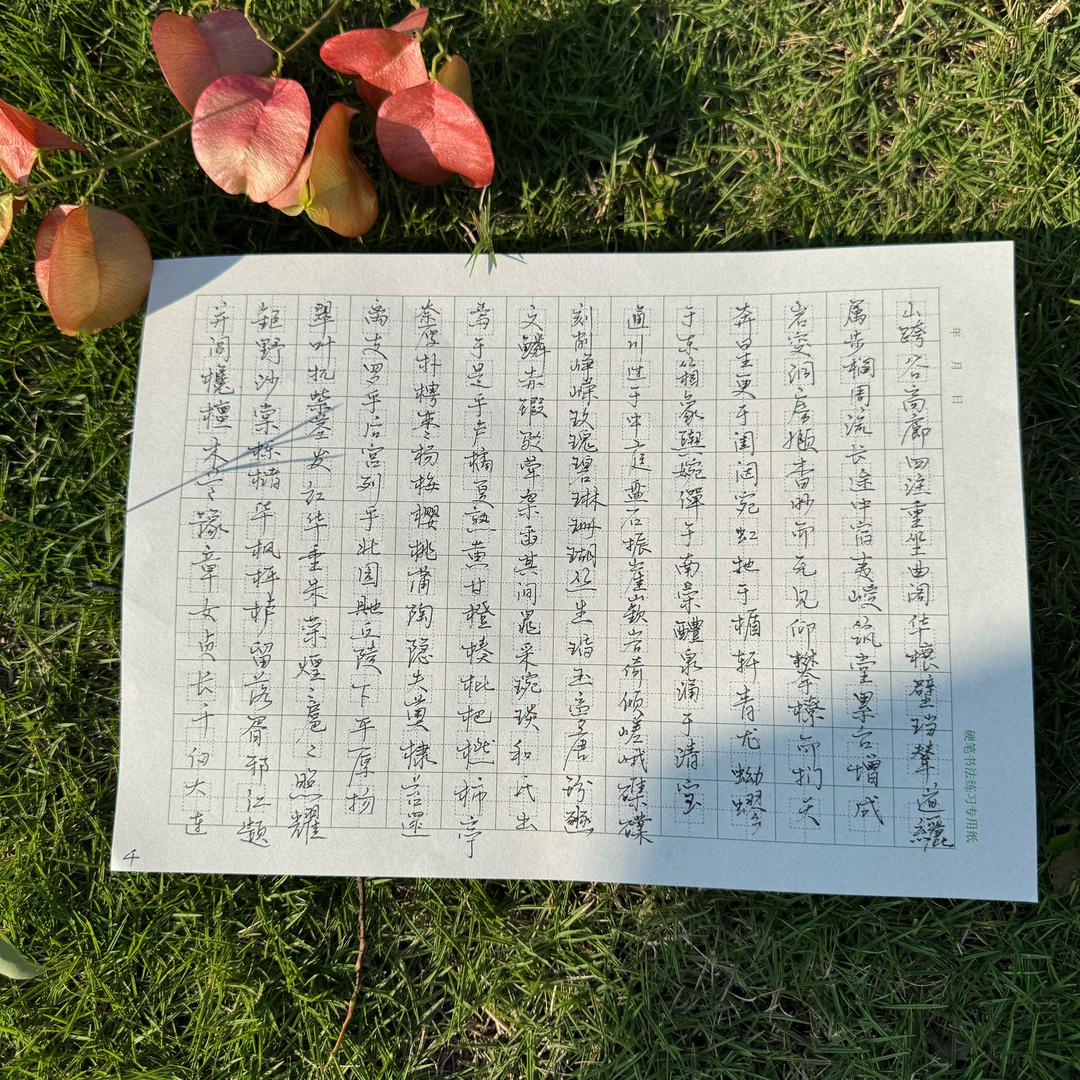 年 月 日
硬笔书法练习专用纸
山跨谷高廊四注重坐曲阁华榱壁珰辇道纚
属步櫩周流长途中宿夷嵕筑堂累台增成
岩窔洞房頫杳眇而无见仰攀橑而扪天
奔星更于闺闼宛虹拖于楯轩青龙蚴蟉
于东箱象舆婉僤于南荣醴泉涌于清室
通川过于中庭盘石振崖嵚岩倚倾嵯峨磼碟
刻削峥嵘玫瑰碧琳珊瑚丛生瑉玉旁唐玢豳
文鳞赤瑕驳荦杂臿其间晁采琬琰和氏出
焉于是乎卢橘夏熟黄甘橙楱枇杷橪柿亭
柰厚朴梬枣杨梅樱桃蒲陶隐夫薁棣荅遝
离支罗乎后宫列乎北园貤丘陵下平原扬
翠叶杌紫茎发红华垂朱荣煌々扈々照耀
钜野沙棠栎槠华枫枰栌留落胥邪仁频
并闾欃檀木兰豫章女贞长千仞大连
4